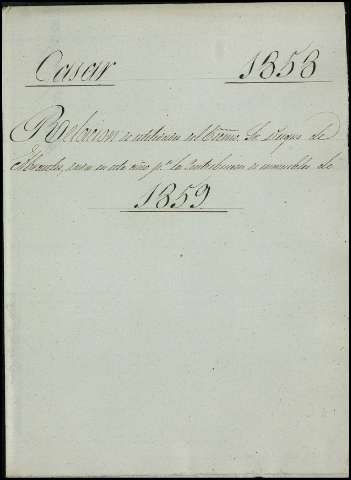 Casar 1858
Relacion de utilidades del Exmo. Sr. Duque de
Abrantes, en este año pa. la Contribucion de inmuebles de
1859